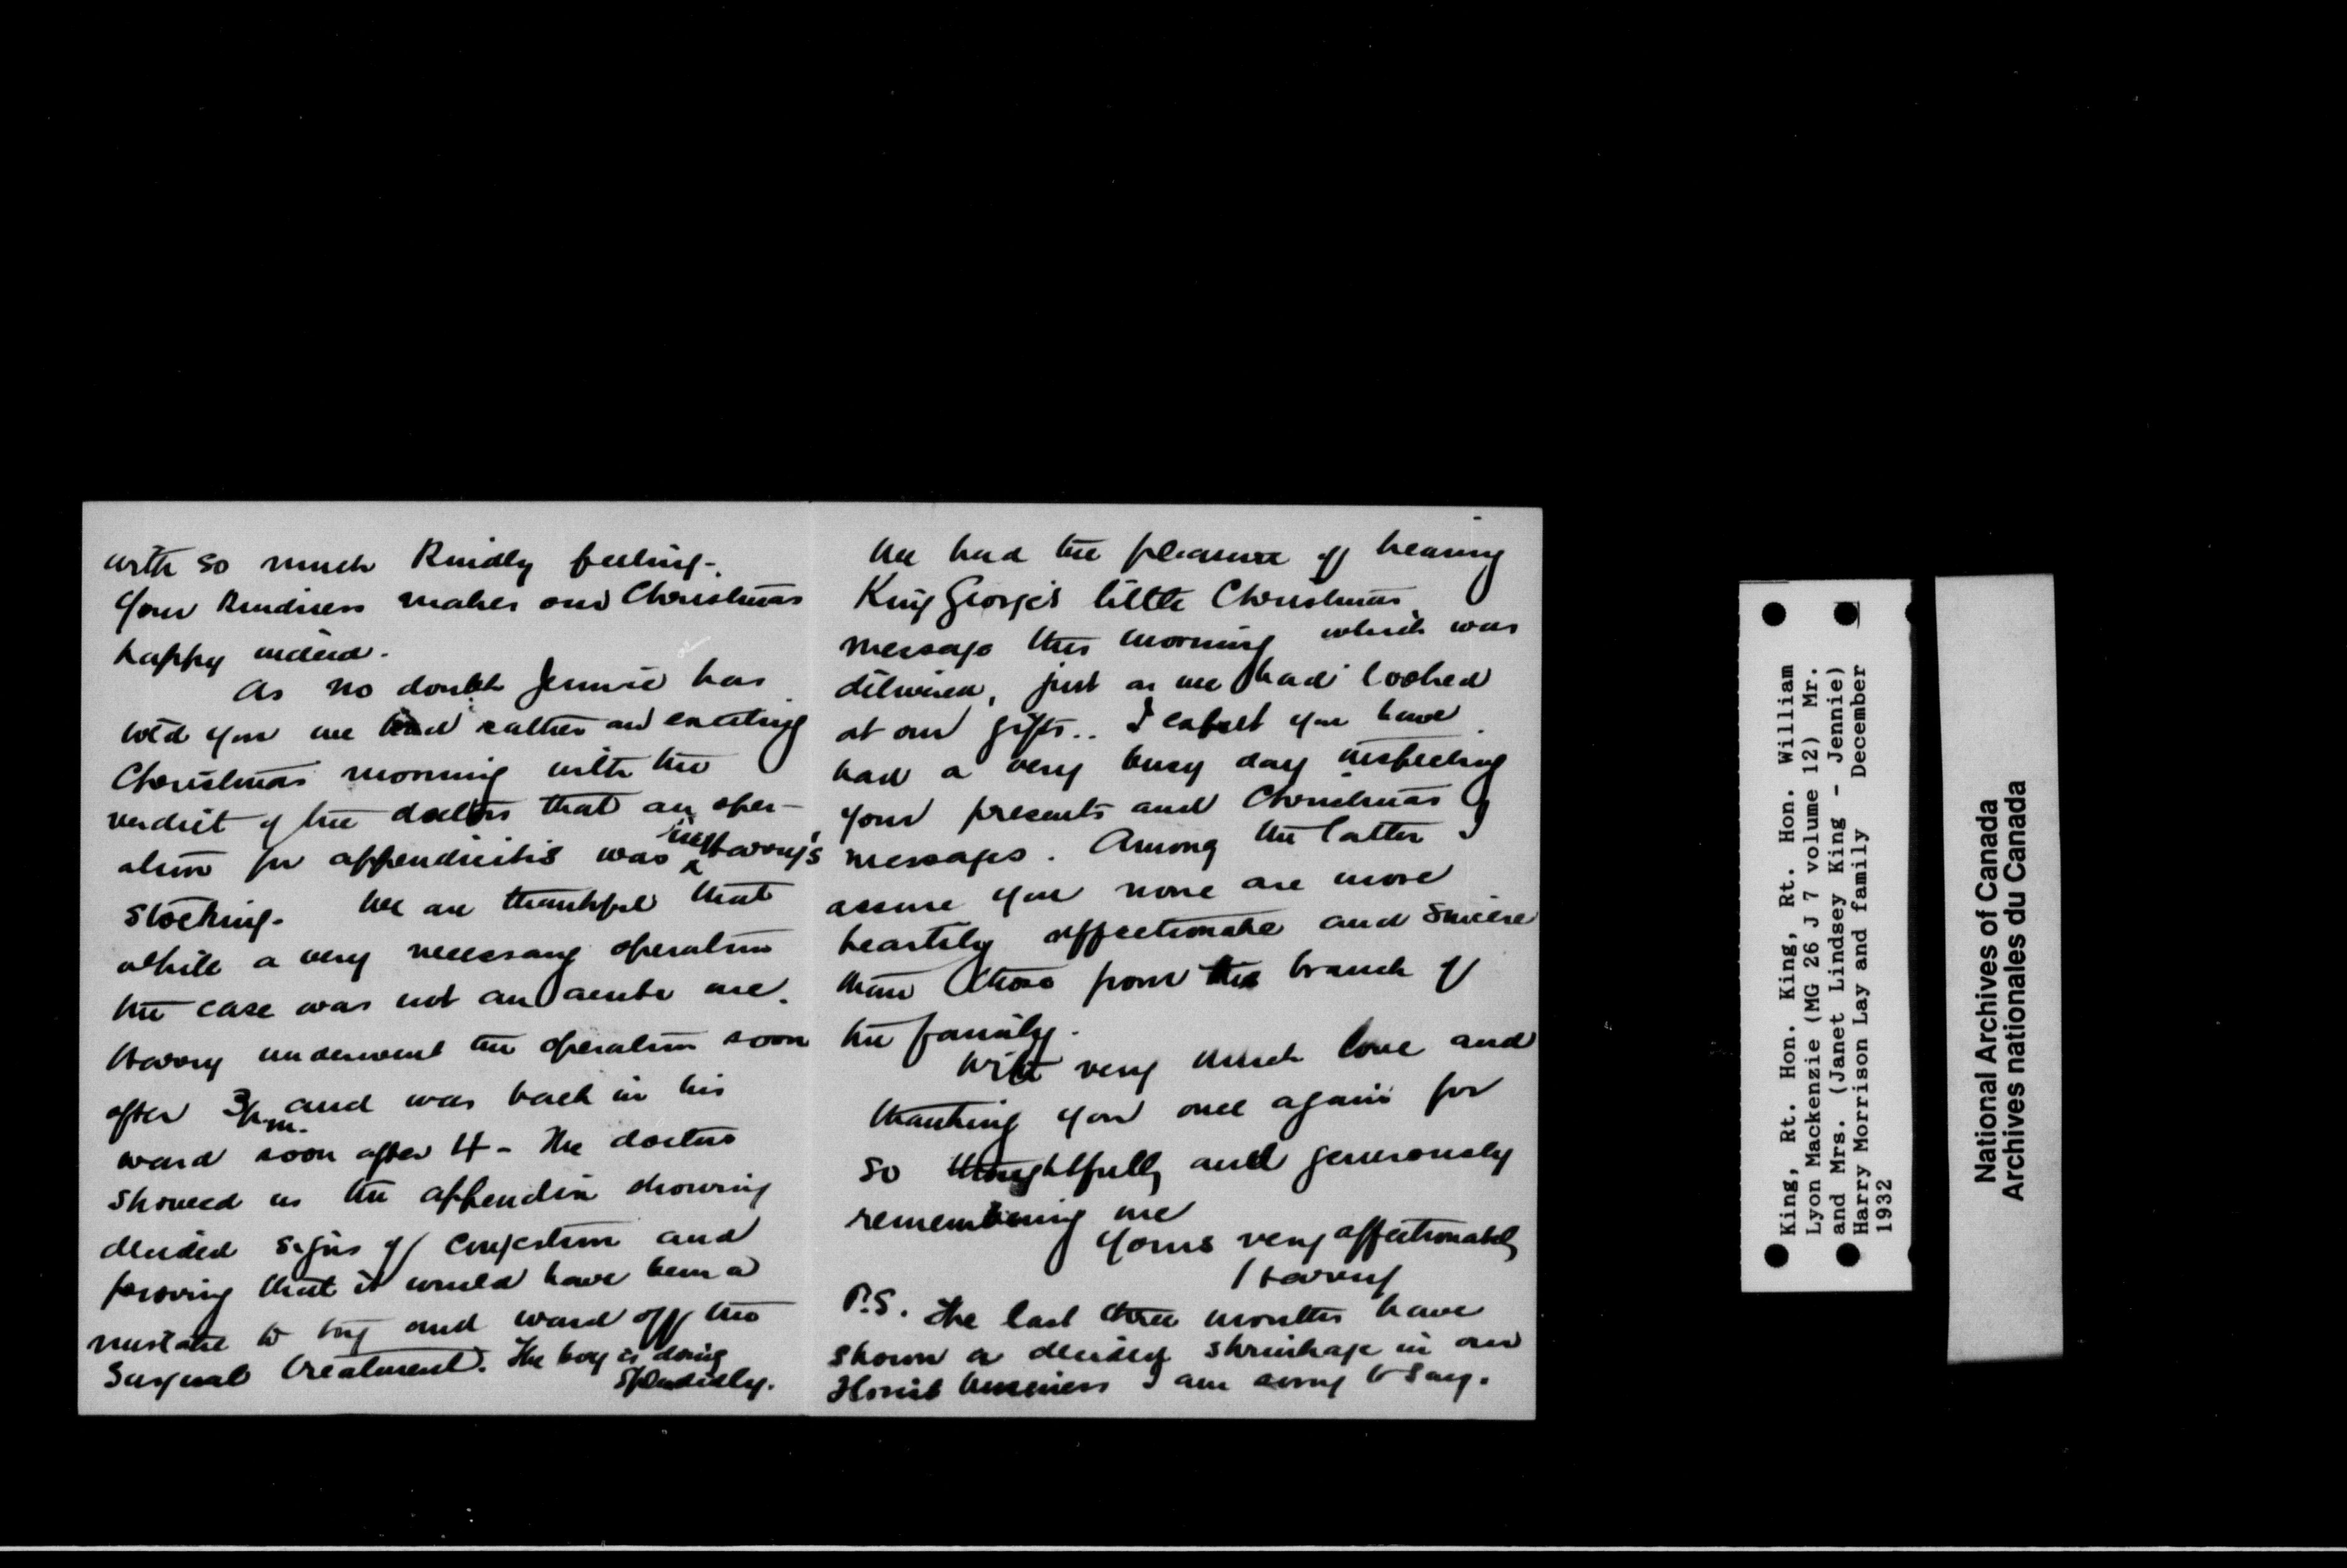 with so much kindly feeling.
Your kindness makes our Christmas
happy indeed.
As no doubt Jennie has
told you we had rather an exciting
Christmas morning with the
verdict of the doctors that an oper-
ation for appendicitis was in Harry's
stocking. We are thankful that
while a very necessary operation
the case was not an acute one.
Harry underwent the operation soon
after 3 p.m. and was back in his
ward soon after 4 - The doctors
showed us the appendix showing
decided signs of congestion and
proving that it would have been a
mistake to try and ward off the
surgical treatment. The boy is doing
splendidly.
We had the pleasure of hearing
King George's little Christmas
message this morning which was
delivered, just as we had looked
at our gifts.. I expect you have
had a very busy day inspecting
your presents and Christmas
messages. Among the latter I
assure you none are more
heartily affectionate and sincere
than those from this branch of
the family.
With very much love and
thanking you once again for
so thoughtfully and generously
remembering me
Yours very affectionately
Harry
P.S. The last three months have
shown a decided shrinkage in our
Florist business I am sorry to say.
King, Rt. Hon. King, Rt. Hon. William
Lyon Mackenzie (MG 26 J 7 volume 12) Mr.
and Mrs. (Janet Lindsey King - Jennie)
Harry Morrison Lay and family December
1932
National Archives of Canada
Archives nationales du Canada